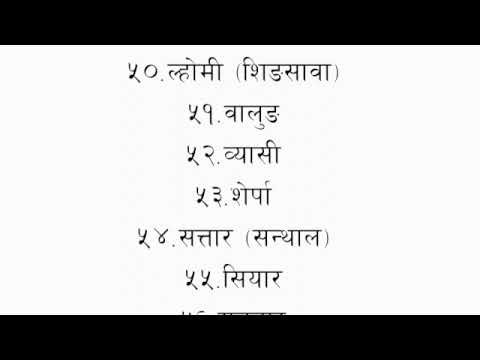 ५०.ल्होमी (शिङसावा)
५१.वालुङ
५२.व्यासी
५३.शेर्पा
५४.सत्तार (सन्थाल)
५५.सियार